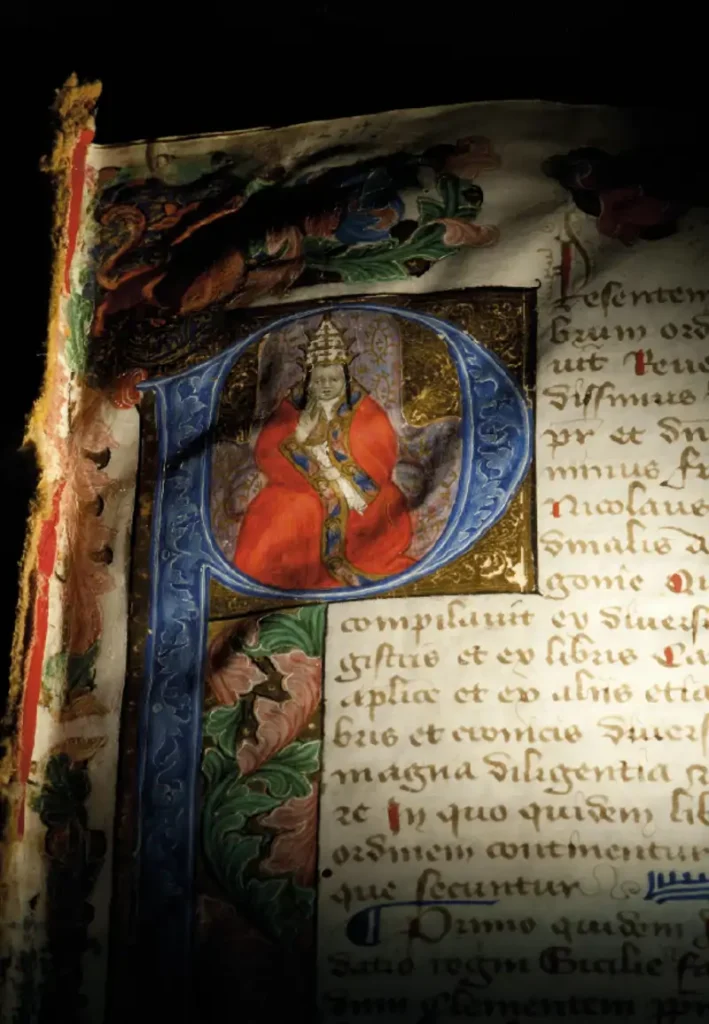 Presentem
brum ord
uit Reue
dissimus
pr et dn
minus fr
Nicolaus
dinalis A
gonie Qu
compilauit ex diuers
gistris et ex libris Ca
aplice et ex aliis etia
bris et cronicis diuers
magna diligentia
re In quo quidem lib
ordinem continentur
que secuntur
Primo quidem
datio regni Sicilie fa
dnm Clementem ppm